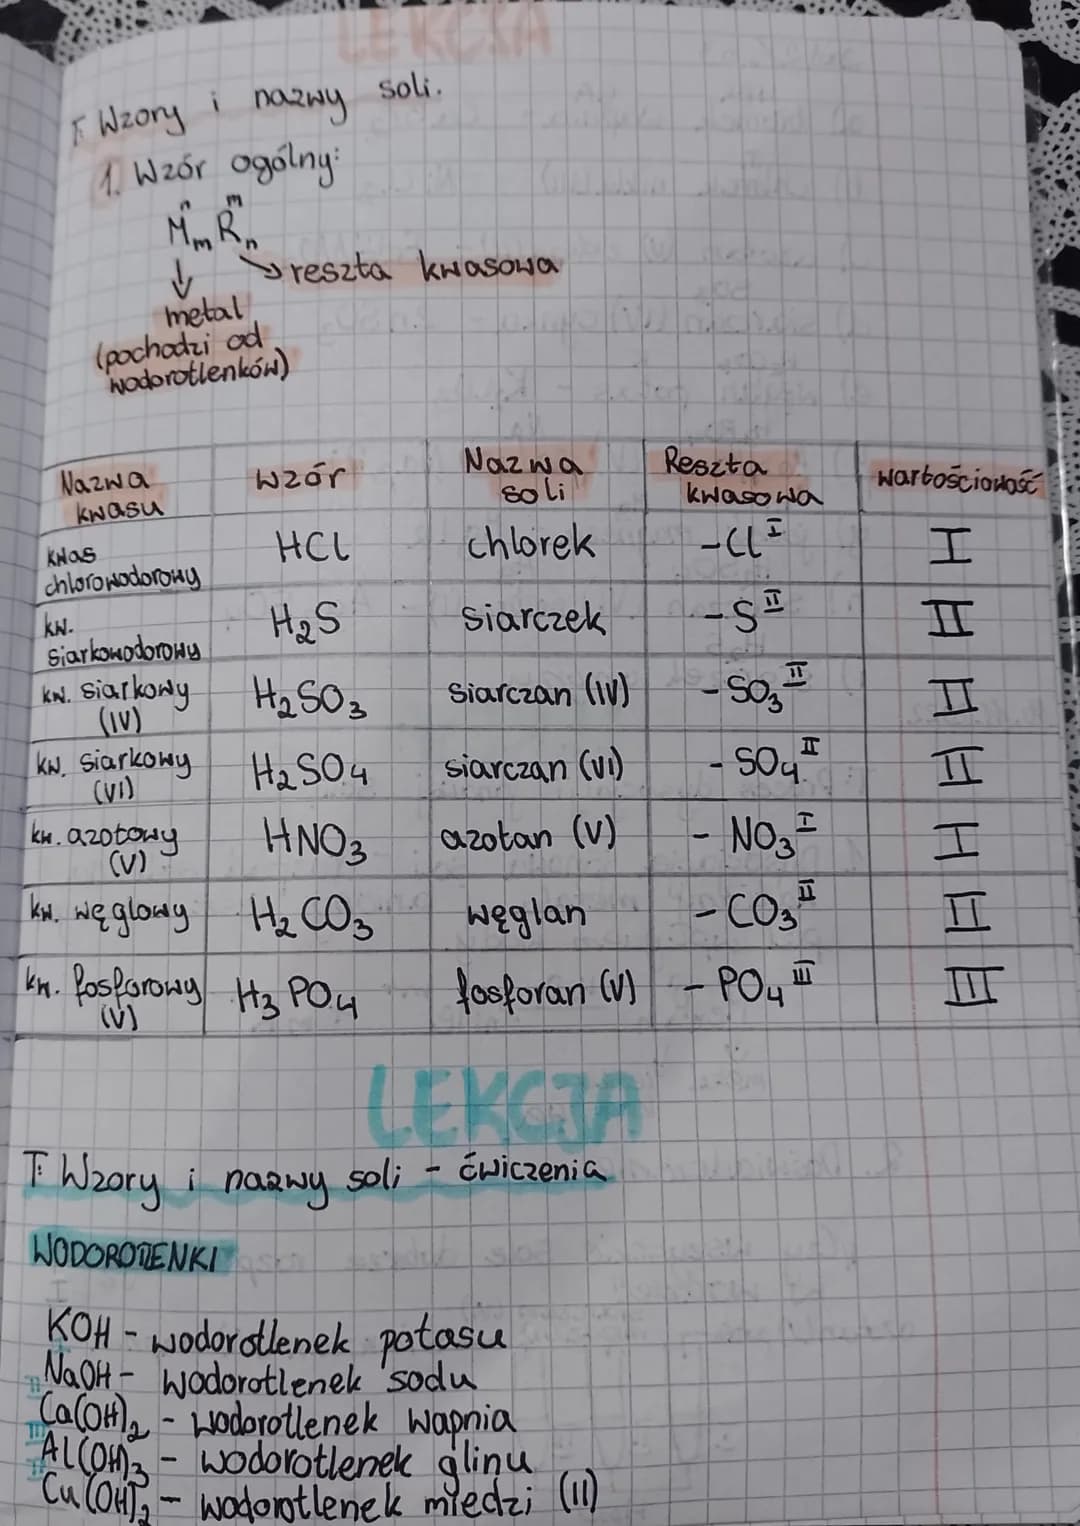 LEKCJA
T: Wzory i nazwy soli.
1. Wzór ogólny:
n m
MmRn
reszta kwasowa
metal
(pochodzi od
wodorotlenków)
Nazwa kwasu Wzór Nazwa soli Reszta kwasowa wartościowość
kwas chlorowodorowy HCl chlorek -Cl I I
kw. siarkowodorowy H2S siarczek -S II II
kw. siarkowy (IV) H2SO3 siarczan (IV) -SO3 II II
kw. siarkowy (VI) H2SO4 siarczan (VI) -SO4 II II
kw. azotowy (V) HNO3 azotan (V) -NO3 I I
kw. węglowy H2CO3 węglan -CO3 II II
kw. fosforowy (V) H3PO4 fosforan (V) -PO4 III III
LEKCJA
T: Wzory i nazwy soli - ćwiczenia
WODOROTLENKI
KOH - wodorotlenek potasu
NaOH - wodorotlenek sodu
II Ca(OH)2 - wodorotlenek wapnia
III Al(OH)3 - wodorotlenek glinu
II Cu(OH)2 - wodorotlenek miedzi (II)